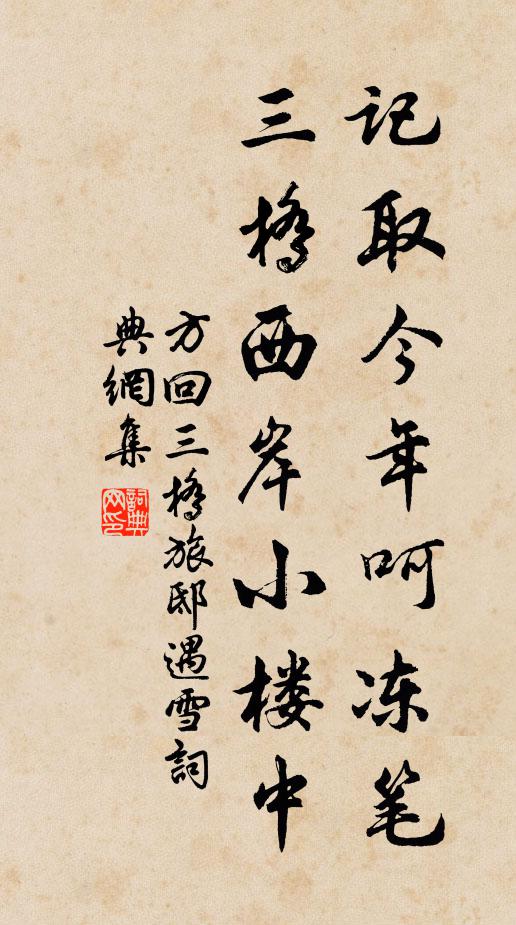 记取今年呵冻笔
三橋西岸小楼中
方回三橋旅邸遇雪詞
典網集
詞典網印